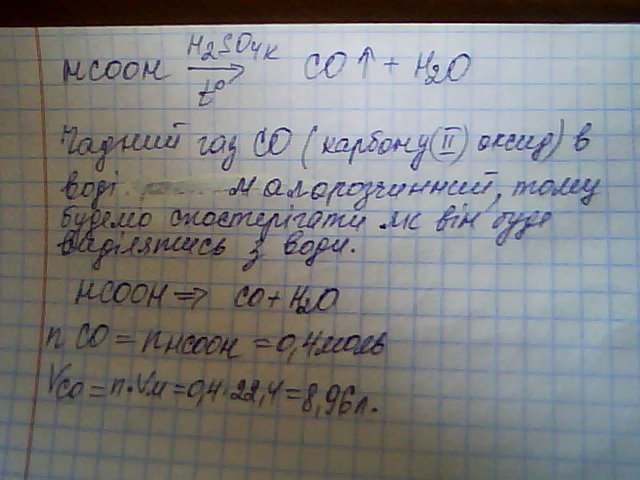 HCOOH H2SO4к → t° CO↑ + H2O
Чадний газ CO (карбону(II) оксид) в
воді малорозчинний, тому
будемо спостерігати як він буде
виділятись з води.
HCOOH ⇒ CO + H2O
n CO = n HCOOH = 0,4 моль
VCO = n·VM = 0,4·22,4 = 8,96 л.